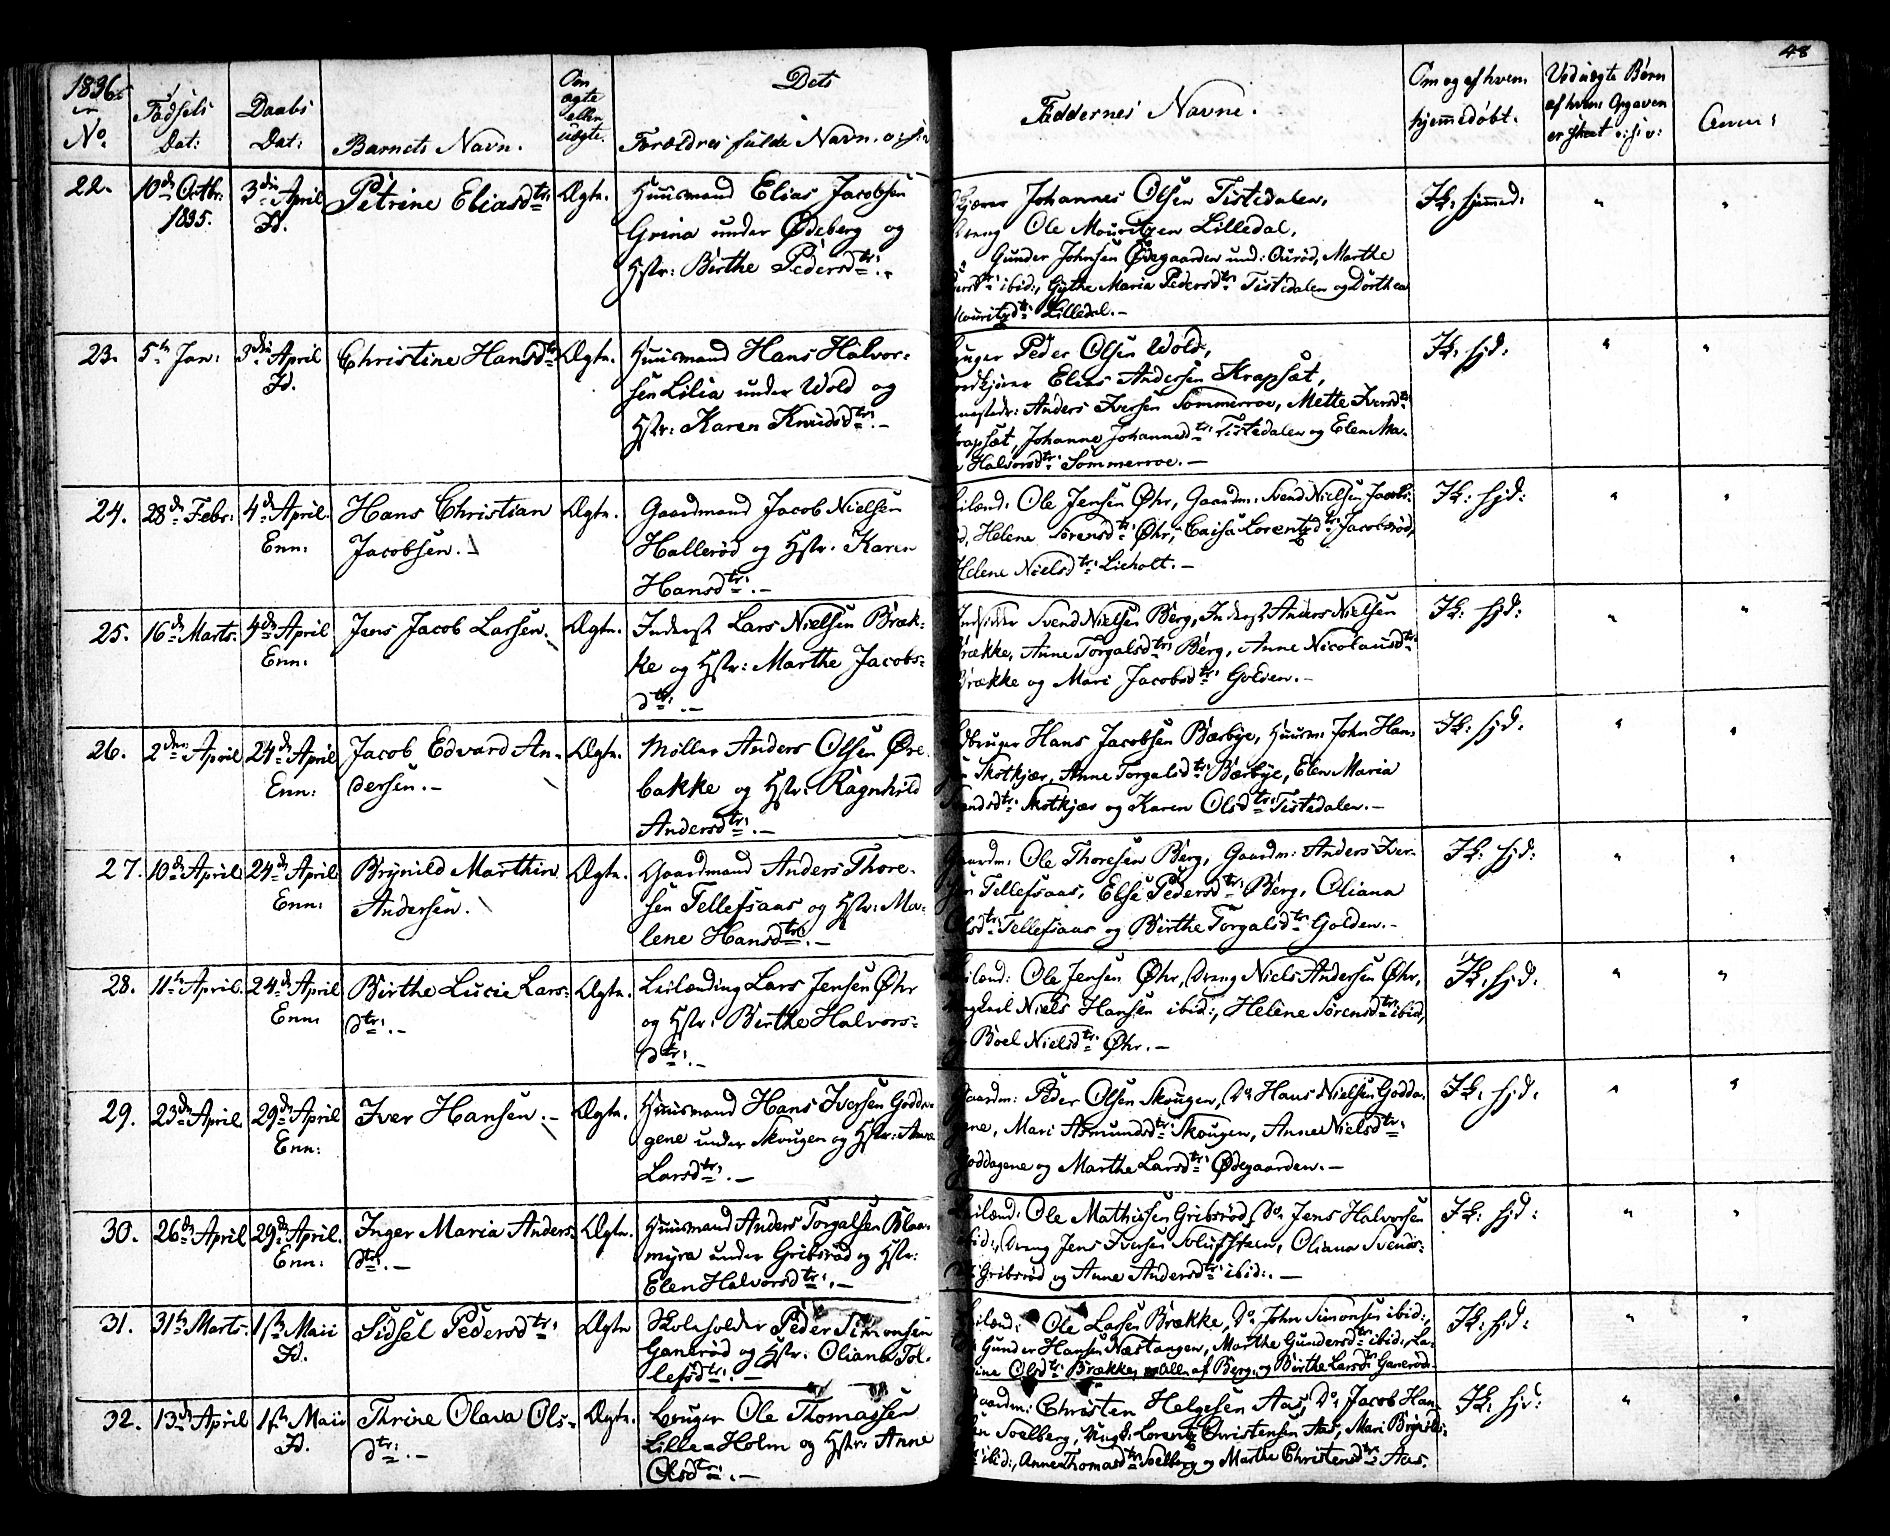 48
1836.
No.
Fødsels Dat:
Daabs Dat:
Barnets Navn.
Om ægte eller uægte.
Dets Forældres fulde Navn
Faddernes Navne.
Om og af hvem hjemmedøbt.
Ved uægte Børn af hvem Opgaven er skeet
Anm:
22. 10de Octbr: 1835. 3die April Id. Petrine Eliasdtr: Ægte. Huusmand Elias Jacobsen
Grina under Ødeberg og
Hstr: Birthe Pedersdtr:.-
Johannes Olsen Tistedalen,
Ole Mouritzen Lilledal,
Gunder Johnsen Ødegaarden und: Marthe
ibid:, Gythe Maria Pedersdtr: Tistedalen og Dorthea
Lilledal.-
Ik: hjemmed:
23. 5te Jan: 3die April Id. Christine Hansdtr: Ægte. Huusmand Hans Halvor-
sen Lilia under Wold og
Hstr: Karen Knudsdtr:.-
Peder Olsen Wold,
Elias Andersen Krapsæt,
Anders Iversen Sommerroe, Mette Iversdtr:
Johanne Johannesdtr: Tistedalen og Elen Ma-
Halvorsdtr: Sommerroe.-
Ik: hjd:
24. 28de Febr: 4de April Enn: Hans Christian
Jacobsen.
Ægte. Gaardmand Jacob Nielsen
Hallerød og Hstr: Karen
Hansdtr:.-
Ole Jensen Øhr, Gaardm: Svend Nielsen Jacobs-
Helene Sørensdtr: Øhr, Caisa Lorentzdtr: Jacobsrød,
Helene Nielsdtr: Lieholt.-
Ik: hjd:
25. 16de Marts. 4de April Enn: Jens Jacob Larsen. Ægte. Inderst Lars Nielsen Bræk-
ke og Hstr: Marthe Jacobs-
dtr:.-
Indsidder Svend Nielsen Berg, Inderst Anders Nielsen
Brække, Anne Torgalsdtr: Berg, Anne Nicolausdtr:
Brække og Mari Jacobsdtr: Golden.-
Ik: hjd:
26. 2den April 24de April Enn: Jacob Edvard An-
dersen.-
Ægte. Møller Anders Olsen Øre-
bakke og Hstr: Ragnhild
Andersdtr:.-
Hans Jacobsen Bærbye, Huusm: John Han-
Skotkjær, Anne Torgalsdtr: Bærbye, Elen Maria
Skotkjær og Karen Olsdtr: Tistedalen.-
Ik: hjd:
27. 10de April 24de April Enn: Brynild Marthin
Andersen.
Ægte. Gaardmand Anders Thore-
sen Tellefsaas og Hstr: Ma-
lene Hansdtr:.-
Gaardm: Ole Thoresen Berg, Gaardm: Anders Iver-
sen Tellefsaas, Else Pedersdtr: Berg, Oliana
Olsdtr: Tellefsaas og Birthe Torgalsdtr: Golden.-
Ik: hjd:
28. 11te April. 24de April Enn: Birthe Lucie Lars-
dtr:.-
Ægte. Leilænding Lars Jensen Øhr
og Hstr: Birthe Halvors-
dtr:.-
Ole Jensen Øhr, Dreng Niels Andersen Øhr,
Niels Hansen ibid:, Helene Sørensdtr: ibid,
Boel Nielsdtr: Øhr.-
Ik: hjd:
29. 23de April 29de April Enn: Iver Hansen.- Ægte. Huusmand Hans Iversen Godda-
gene under Skougen og Hstr: Anne
Larsdtr:.-
Gaardm: Peder Olsen Skougen, Do Hans Nielsen Godda-
gene, Mari Asmundsdtr: Skougen, Anne Nielsdtr:
Goddagene og Marthe Larsdtr: Ødegaarden.-
Ik: hjd:
30. 26de April 29de April. Enn: Inger Maria Anders-
dtr:.-
Ægte. Huusmand Anders Torgalsen Blaa-
myra under Gribsrød og Hstr:
Elen Halvorsdtr:.-
Ole Mathissen Gribsrød, Do Jens Halvorsen
ibid:, Dreng Jens Iversen Oliana Svends-
Gribsrød og Anne Andersdtr: ibid:.-
Ik: hjd:
31. 31te Marts. 1ste Maii Id. Sidsel Pedersdtr: Ægte Skoleholder Peder Simonsen
Ganerød og Hstr: Oliana Tol-
lefsdtr:.-
Ole Larsen Brække, Do John Simonsen ibid:,
Gunder Hansen Næstangen, Marthe Gundersdtr: ibid:,
Olsdtr: Brække, alle af Berg, og Birthe Larsdtr: Ganerød.
Ik: hjd:
32. 13de April 1ste Maii Id. Thrine Olava Ols-
dtr:.-
Ægte. Bruger Ole Thomassen
Lille-Holm og Hstr: Anne
Olsdtr:.-
Gaardm: Christen Helgesen Aas, Do Jacob Han-
sen Soelberg, Ungk: Lorentz Christensen Aas, Mari
ibid:, Anne Thomasdtr: Soelberg og Marthe Christensdtr: Aas.
Ik: hjd: